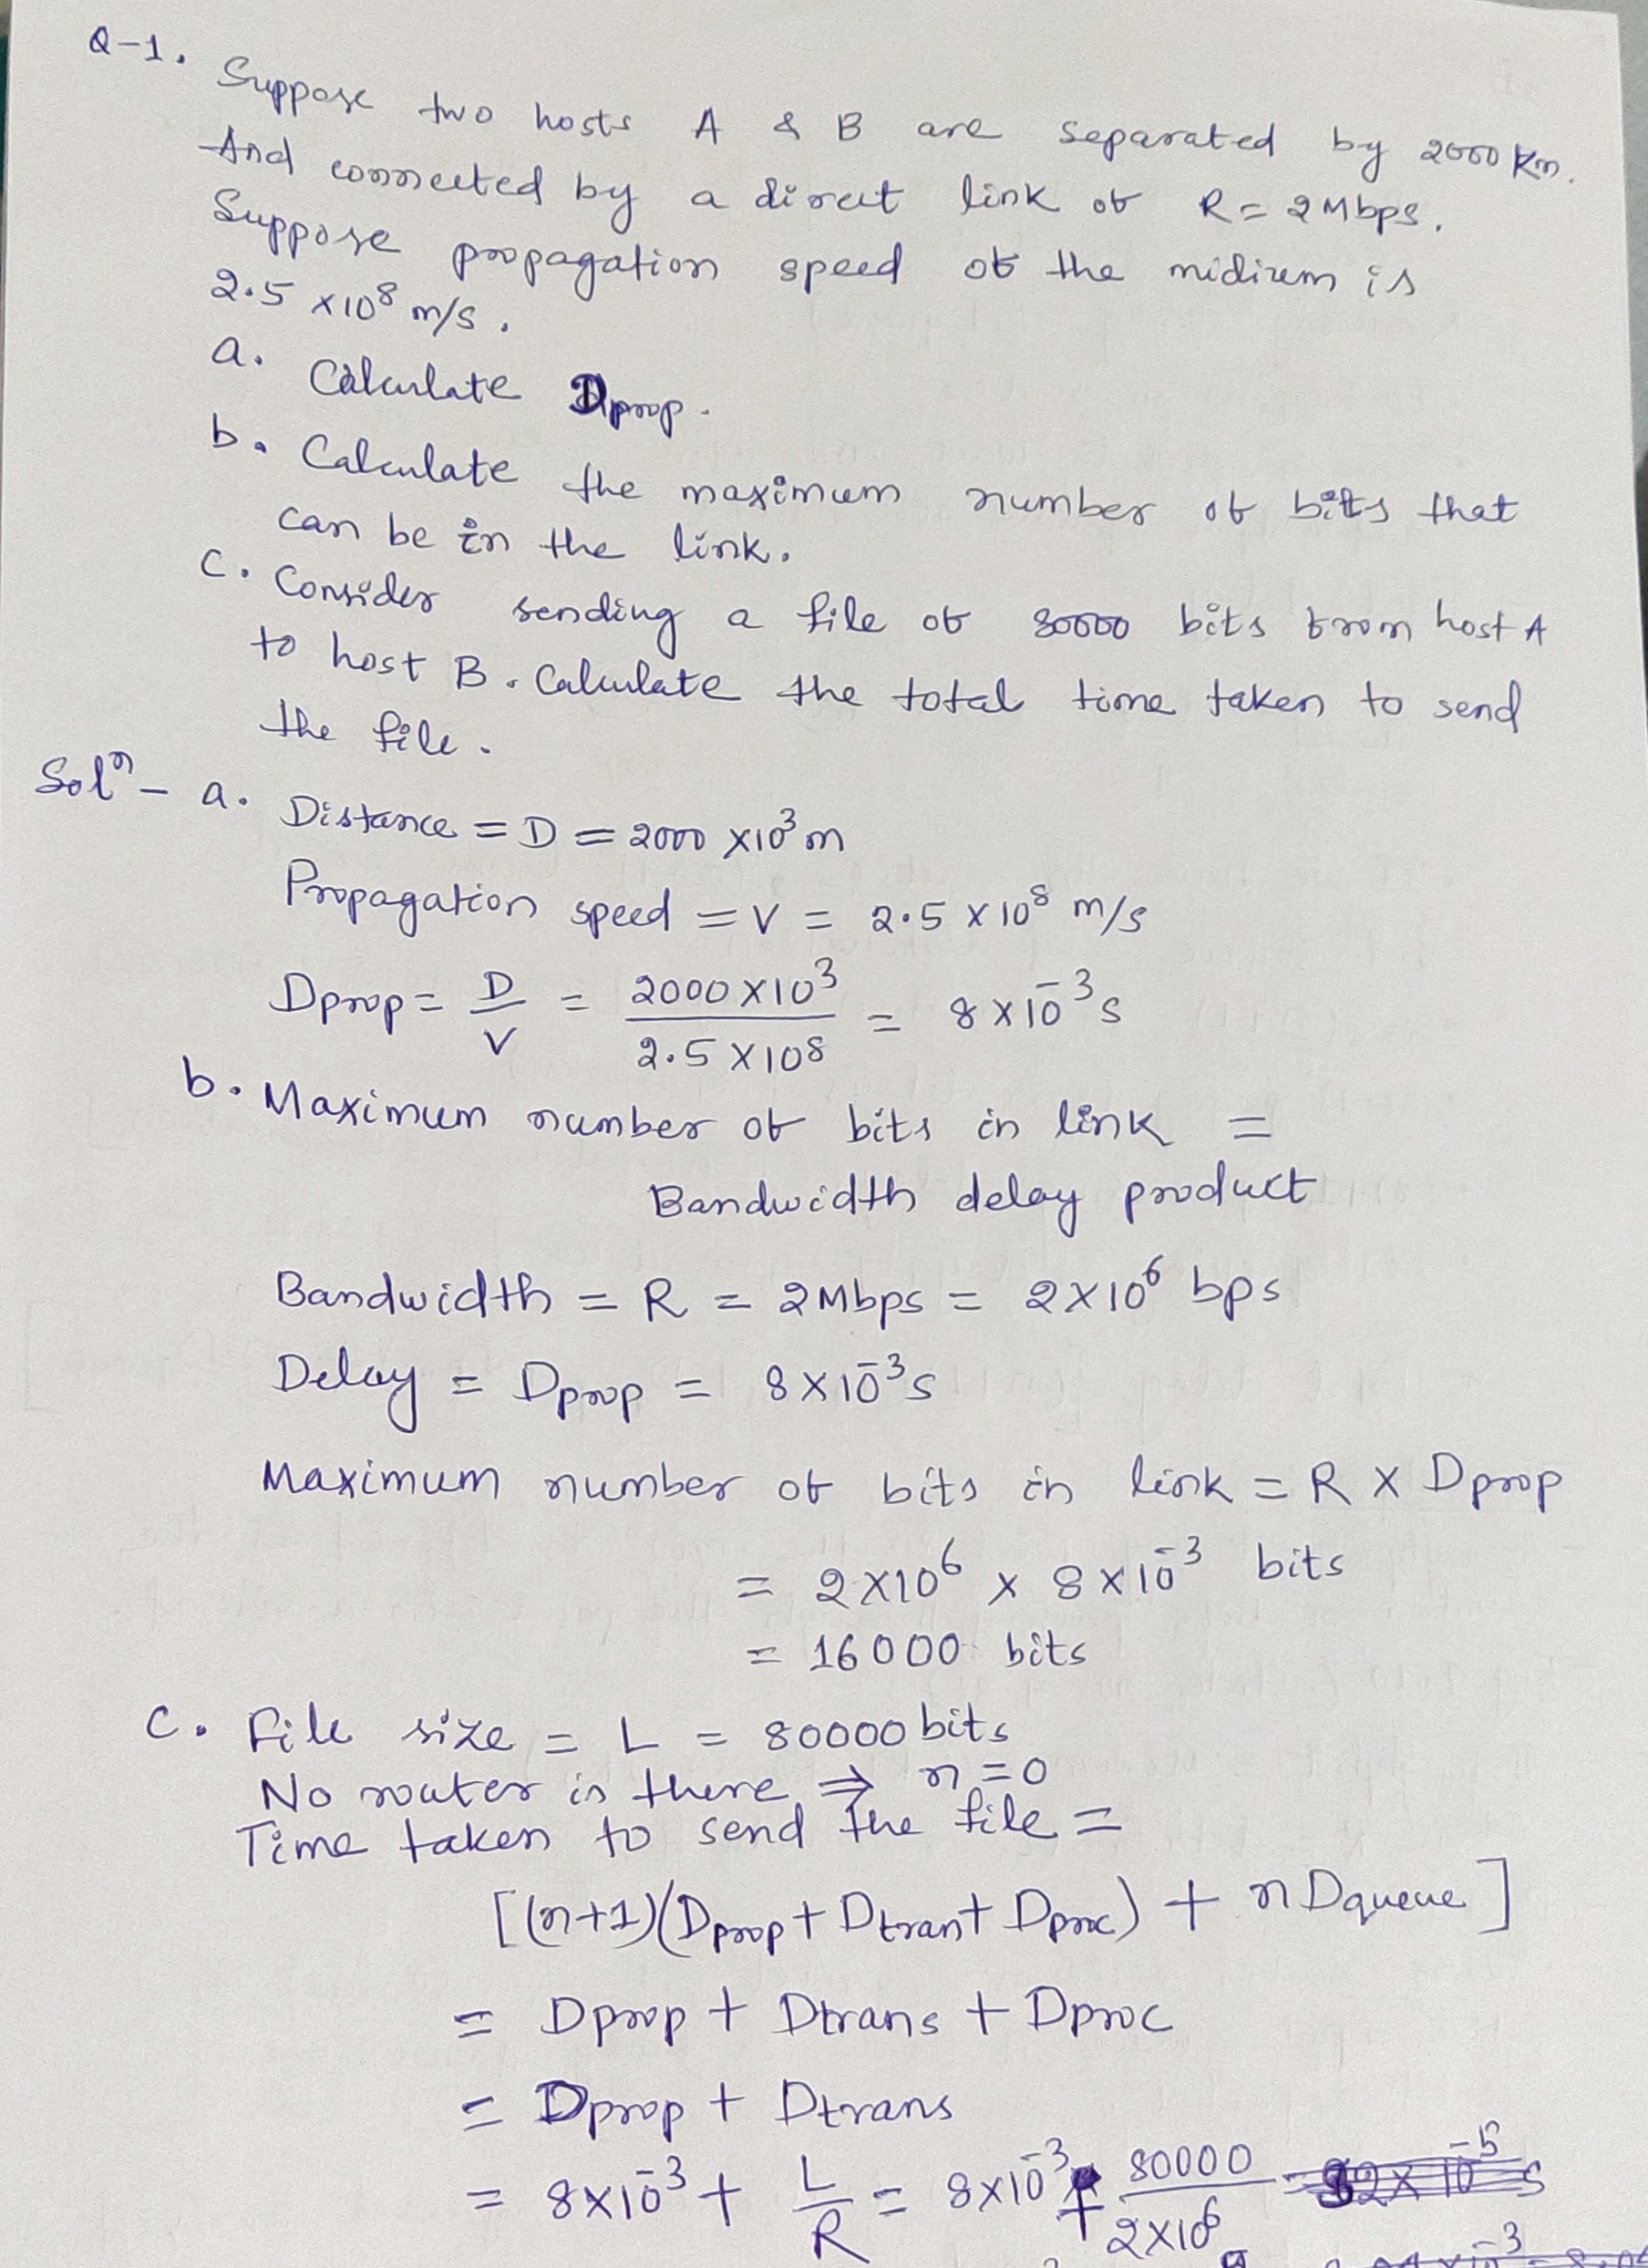 Q-1. Suppose two hosts A & B are separated by 2000 Km.
And connected by a direct link of R = 2 Mbps.
Suppose propagation speed of the midium is
2.5 × 10⁸ m/s.
a. Calculate Dprop.
b. Calculate the maximum number of bits that
can be in the link.
c. Consider sending a file of 80000 bits from host A
to host B. Calculate the total time taken to send
the file.
Solⁿ - a. Distance = D = 2000 × 10³ m
Propagation speed = V = 2.5 × 10⁸ m/s
Dprop = D/V = 2000 × 10³ / 2.5 × 10⁸ = 8 × 10⁻³ s
b. Maximum number of bits in link =
Bandwidth delay product
Bandwidth = R = 2 Mbps = 2 × 10⁶ bps
Delay = Dprop = 8 × 10⁻³ s
Maximum number of bits in link = R × Dprop
= 2 × 10⁶ × 8 × 10⁻³ bits
= 16000 bits
c. File size = L = 80000 bits
No router is there ⇒ n = 0
Time taken to send the file =
[(n+1)(Dprop + Dtran + Dproc) + n Dqueue]
= Dprop + Dtrans + Dproc
= Dprop + Dtrans
= 8 × 10⁻³ + L/R = 8 × 10⁻³ + 80000 / 2 × 10⁶